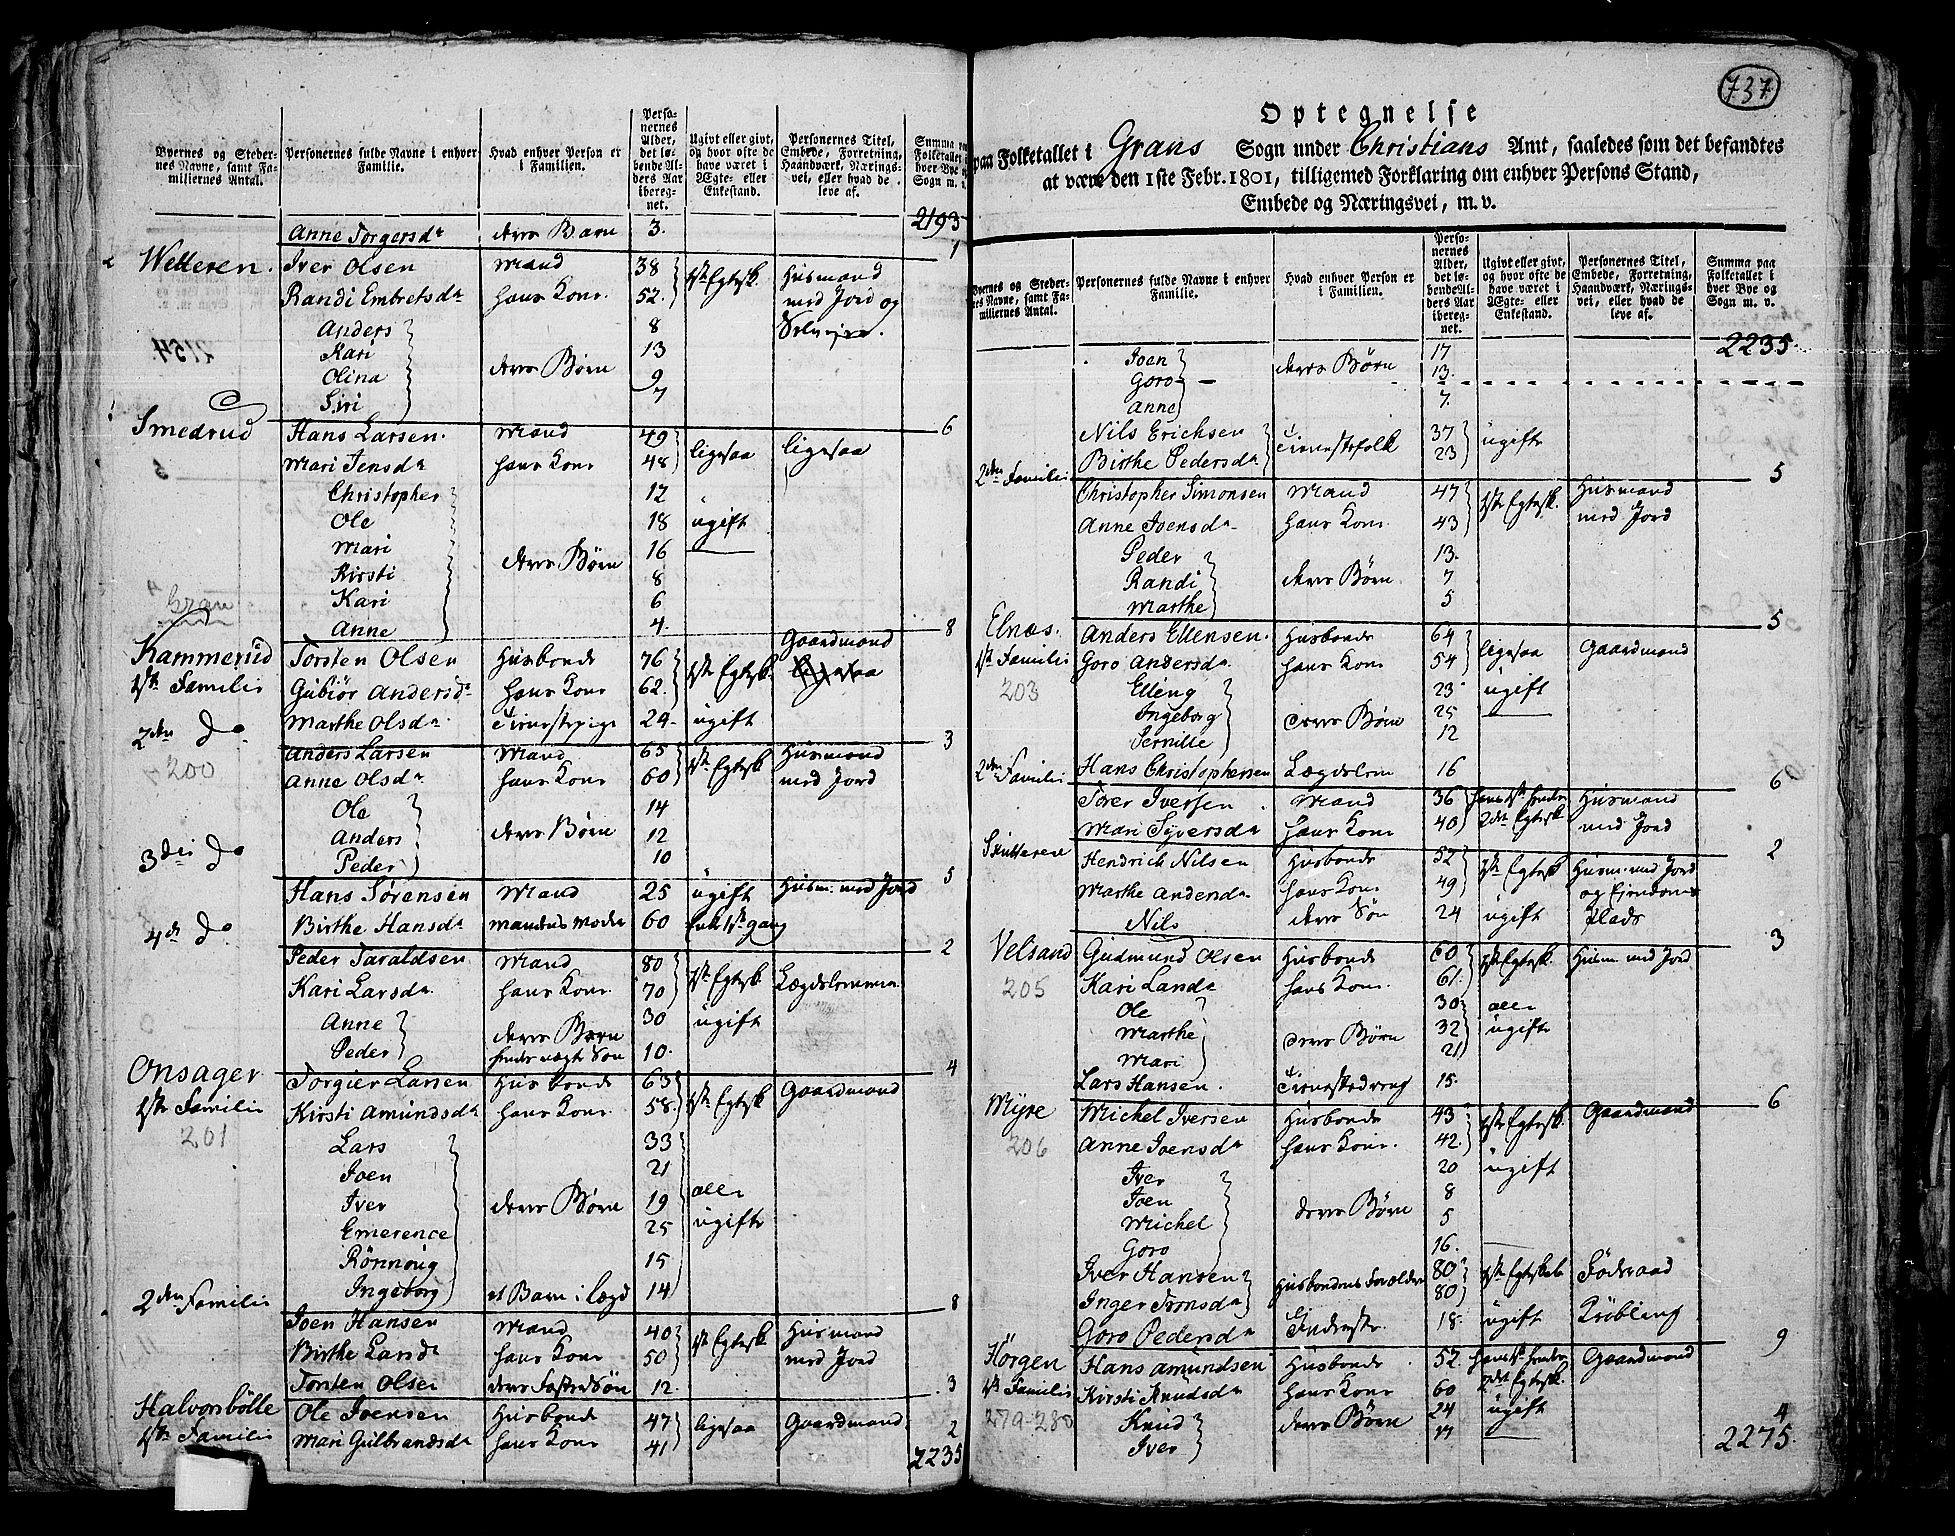 Byernes og Stedernes Navne, samt Familiernes Antal. | Personernes fulde Navne i enhver Familie. | Hvad enhver Person er i Familien. | Personernes Alder, det løbende Alders Aar iberegnet. | Ugivt eller givt, og hvor ofte de have været i Ægte- eller Enkestand. | Personernes Titel, Embede, Forretning, Haandværk, Næringsvei, eller hvad de leve af. | Summa Folketallet hver Bye Sogn m.
2193
Anne Torgersdr | deres Barn | 3. | 1
Wetteren. | Iver Olsen | Mand | 38 | 1ste Egtesk. | Husmand
Randi Embretsdr | hans Kone | 52. | med Jord og
Anders | 8
Kari | 13
Olina | deres Børn | 9
Siri | 7 | 6
Smedrud | Hans Larsen. | Mand | 49 | ligesaa | ligesaa
Mari Jensdr | hans Kone | 48
Christopher | 12
Ole | 18 | ugift
Mari | 16
Kirsti | deres Børn | 8
Kari | 6
Gran
Anne | 4. | 8
Kammerud | Torsten Olsen | Husbonde | 76 | 1ste Egtesk. | Gaardmand
1ste Familie | Gubiør Andersdr | hans Kone | 62.
Marthe Olsdr. | Tienestepige | 24 | ugift | 3
2den do | Anders Larsen | Mand | 65 | 1ste Egtesk | Husmand
200 | Anne Olsdr | hans Kone | 60 | med Jord
Ole | 14
Anders | deres Børn | 12
Peder | 10 | 5
3die do | Hans Sørensen | Mand | 25 | ugift | Husm. med Jord
Birthe Hansdr | mandens Moder | 60 | Enke 1ste gang | 2
4de do | Peder Taraldsen | Mand | 80 | 1ste Egtesk | Lægdslemmer
Kari Larsdr. | hans Kone | 70
Anne | deres Barn | 30 | ugift
Peder | hendes uægte Søn | 10. | 4
Onsager | Torgier Larsen | Husbonde | 63 | 1ste Egtesk | Gaardmand
1ste Familie | Kirsti Amundsdr | hans Kone | 58.
201 | Lars | 33
Joen | 21
Iver | deres Børn | 19 | alle
Emerence | 25 | ugifte
Rønnoug | 15
Ingeborg | et Barn i Lægd | 14 | 8
2den Familie | Joen Hansen | Mand | 40 | 1ste Egtesk | Husmand
Birthe Larsdr | hans Kone | 50 | med Jord
Torsten Olsen | deres FosterSøn | 12. | 3
Halvorsbølle | Ole Joensen | Husbonde | 47 | ligesaa | Gaardmand
1ste Familie | Mari Gulbrandsdr | hans Kone | 41 | 2
2235
737
Optegnelse
paa Folketallet i Grans Sogn under Christians Amt, saaledes som det befandtes
at være den 1ste Febr. 1801, tilligemed Forklaring om enhver Persons Stand,
Embede og Næringsvei, m. v.
Byernes og Stedernes Navne, samt Familiernes Antal. | Personernes fulde Navne i enhver Familie. | Hvad enhver Person er i Familien. | Personernes Alder, det løbende Alders Aar iberegnet. | Ugivt eller givt, og hvor ofte de have været i Ægte- eller Enkestand. | Personernes Titel, Embede, Forretning, Haandværk, Næringsvei, eller hvad de leve af. | Summa paa Folketallet i hver Bye og Sogn m. v.
2235
Joen | deres Børn | 17
Goro | 13.
Anne | 7.
Nils Erichsen | Tienestefolk | 37 | ugifte
Birthe Pedersdr | 23 | 5
2den Familie | Christopher Simonsen | Mand | 47 | 1ste Egtesk. | Husmand
Anne Joensdr | hans Kone | 43 | med Jord
Peder | 13.
Randi | deres Børn | 7
Marthe | 5 | 5
Elnæs. | Anders Ellensen. | Husbonde | 64 | ligesaa | Gaardmand
1ste Familie | Goro Andersdr. | hans Kone | 54
203 | Elling | 23 | ugift
Ingeborg | deres Børn | 25
Pernille | 12
Hans Christophersen | Lægdslem | 16 | 6
2den Familie | Torer Iversen | Mand | 36 | hans 1ste hendes | Husmand
Mari Syversdr | hans Kone | 40 | 2det Egtesk | med Jord | 2
Skutteren | Hendrich Nilsen | Husbonde | 52 | 1ste Egtesk | Husm. med Jord
Marthe | hans Kone | 49 | og
Nils | deres Søn | 24 | ugift | Plads | 3
Velsand | Gudmund Olsen | Husbonde | 60 | 1ste Egtesk. | Husm. med Jord
205 | Kari Larsdr | hans Kone | 61.
Ole | 30 | alle
Marthe | deres Børn | 32 | ugifte
Mari | 21
Lars Hansen. | Tienestedreng | 15. | 6
Myre | Michel Iversen | Husbonde | 43 | 1ste Egtesk. | Gaardmand
206 | Anne Joensdr | hans Kone. | 42.
Iver | 20 | ugift
Joen | 8
Michel | deres Børn | 5
Goro | 16.
Iver Hansen | Husbondens Forældre | 80 | 1ste Egteskab | Føderaad
Inger | 80
Goro Pedersdr | 18. | ugift | Krøbling | 9
Horgen | Hans Amundsen | Husbonde | 52. | hans 1ste hendes | Gaardmand
1ste Familie | Kirsti Knudsdr | hans Kone | 60 | 2det Egtesk.
279-280 | Knud | deres Børn | 24 | ugift
Iver | 17 | 4
2275